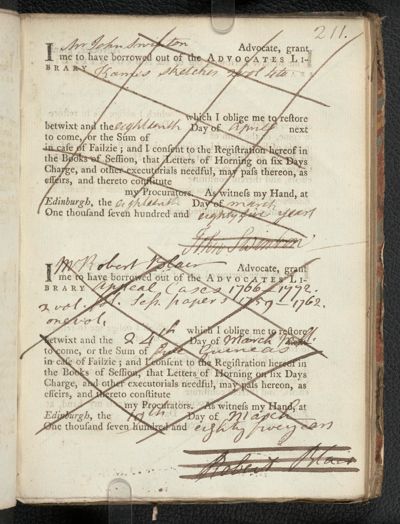 211.
I Mr John Swinton Advocate, grant
me to have borrowed out of the ADVOCATES LI-
BRARY Kames sketches 2 vol 4to
which I oblige me to reſtore
betwixt and the eighteenth Day of April next
to come, or the Sum of
in caſe of Failzie; and I conſent to the Regiſtration hereof in
the Books of Seſſion, that Letters of Horning on ſix Days
Charge, and other executorials needful, may paſs thereon, as
effeirs, and thereto conſtitute
my Procurators. As witneſs my Hand, at
Edinburgh, the eighteenth Day of march
One thouſand ſeven hundred and eighty five years
John Swinton
I Mr Robert Blair Advocate, grant
me to have borrowed out of the ADVOCATES LI-
BRARY Appeal Cases 1766–1772.
2 vol. Seſs. papers 1759–1762.
one vol.
which I oblige me to reſtore
betwixt and the 24th Day of March
to come, or the Sum of five Guineas
in caſe of Failzie; and I conſent to the Regiſtration hereof in
the Books of Seſſion, that Letters of Horning on ſix Days
Charge, and other executorials needful, may paſs hereon, as
effeirs, and thereto conſtitute
my Procurators. As witneſs my Hand, at
Edinburgh, the Day of March
One thouſand ſeven hundred and eighty five years
Robert Blair